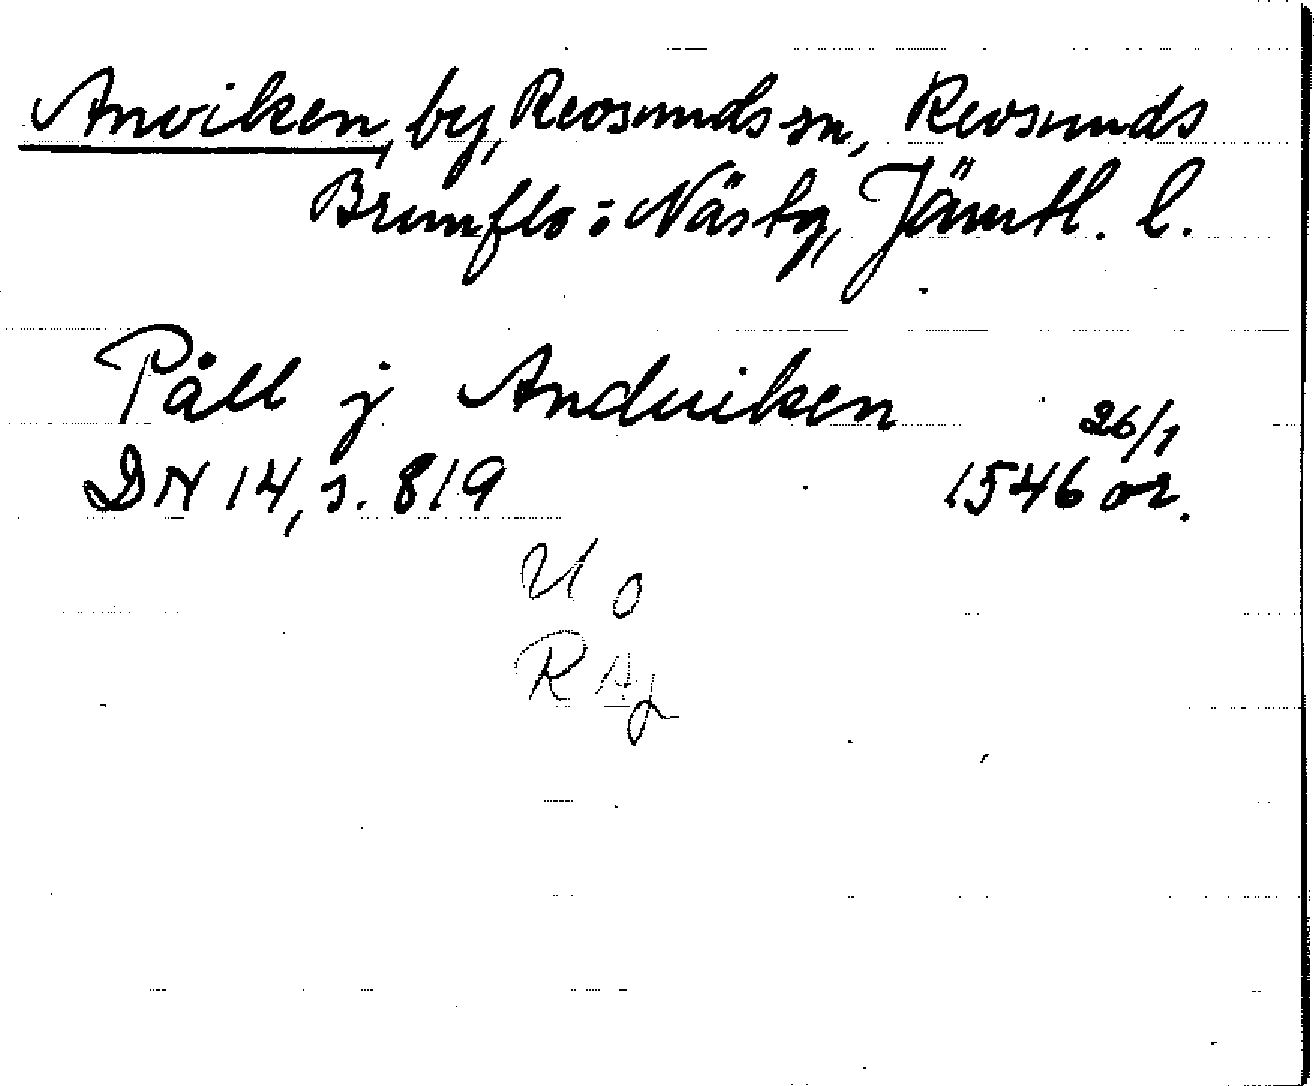 Anviken, by, Revsunds sn, Revsunds
Brunflo o Näs tg, Jämtl. l.
Påll j Anduiken 26/1
DN 14, s. 819 1546 or.
U o
R